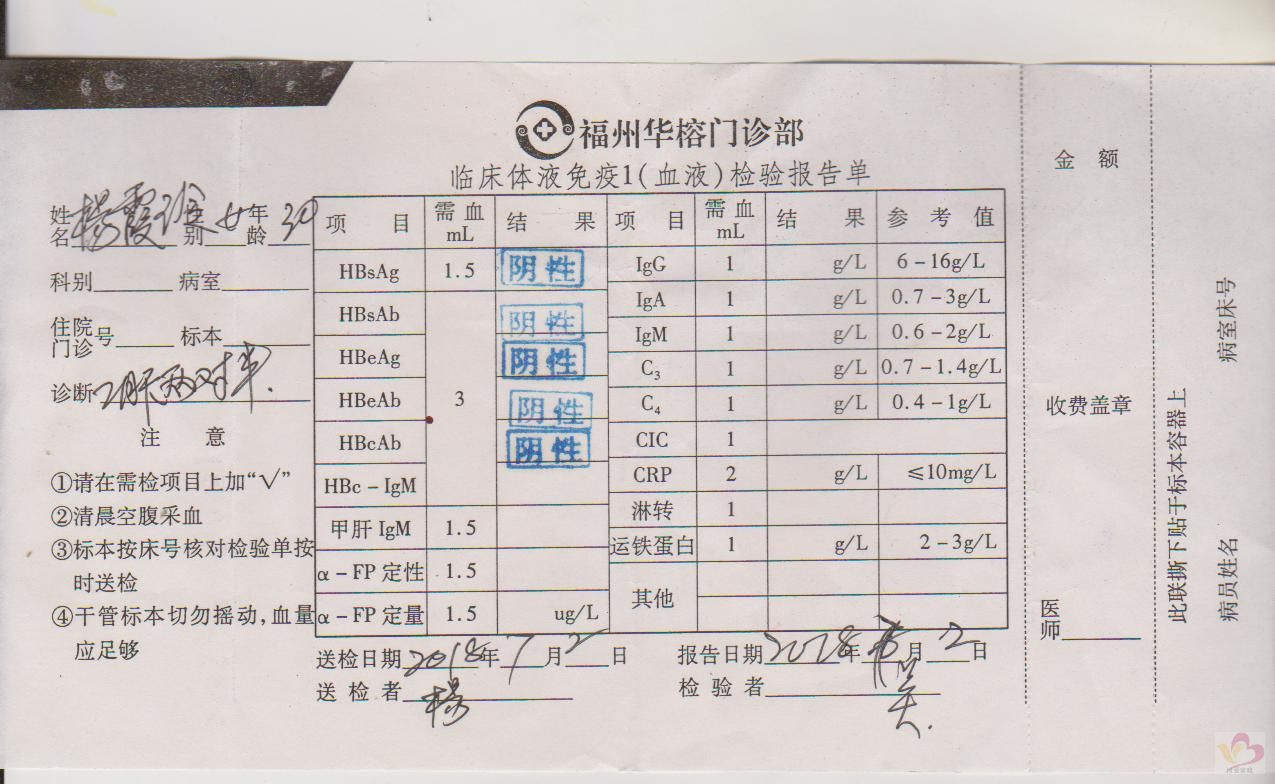 福州华榕门诊部
临床体液免疫1(血液)检验报告单
姓名 杨霞 别 女 年龄 30
科别 病室
住院门诊号 标本
诊断 乙肝两对半.
注 意
①请在需检项目上加“√”
②清晨空腹采血
③标本按床号核对检验单按
时送检
④干管标本切勿摇动,血量
应足够
项 目 需血mL 结 果 项 目 需血mL 结 果 参考值
HBsAg 1.5 阴性 IgG 1 g/L 6-16g/L
HBsAb 阴性 IgA 1 g/L 0.7-3g/L
HBeAg 阴性 IgM 1 g/L 0.6-2g/L
C3 1 g/L 0.7-1.4g/L
HBeAb 3 阴性 C4 1 g/L 0.4-1g/L
HBcAb 阴性 CIC 1
HBc-IgM CRP 2 g/L ≤10mg/L
甲肝 IgM 1.5 淋转 1
α-FP 定性 1.5 运铁蛋白 1 g/L 2-3g/L
α-FP 定量 1.5 ug/L 其他
送检日期 2018年7月2日 报告日期 年 月2日
送检者 杨 检验者
金 额
收费盖章
医师
此联撕下贴于标本容器上
病室床号
病员姓名